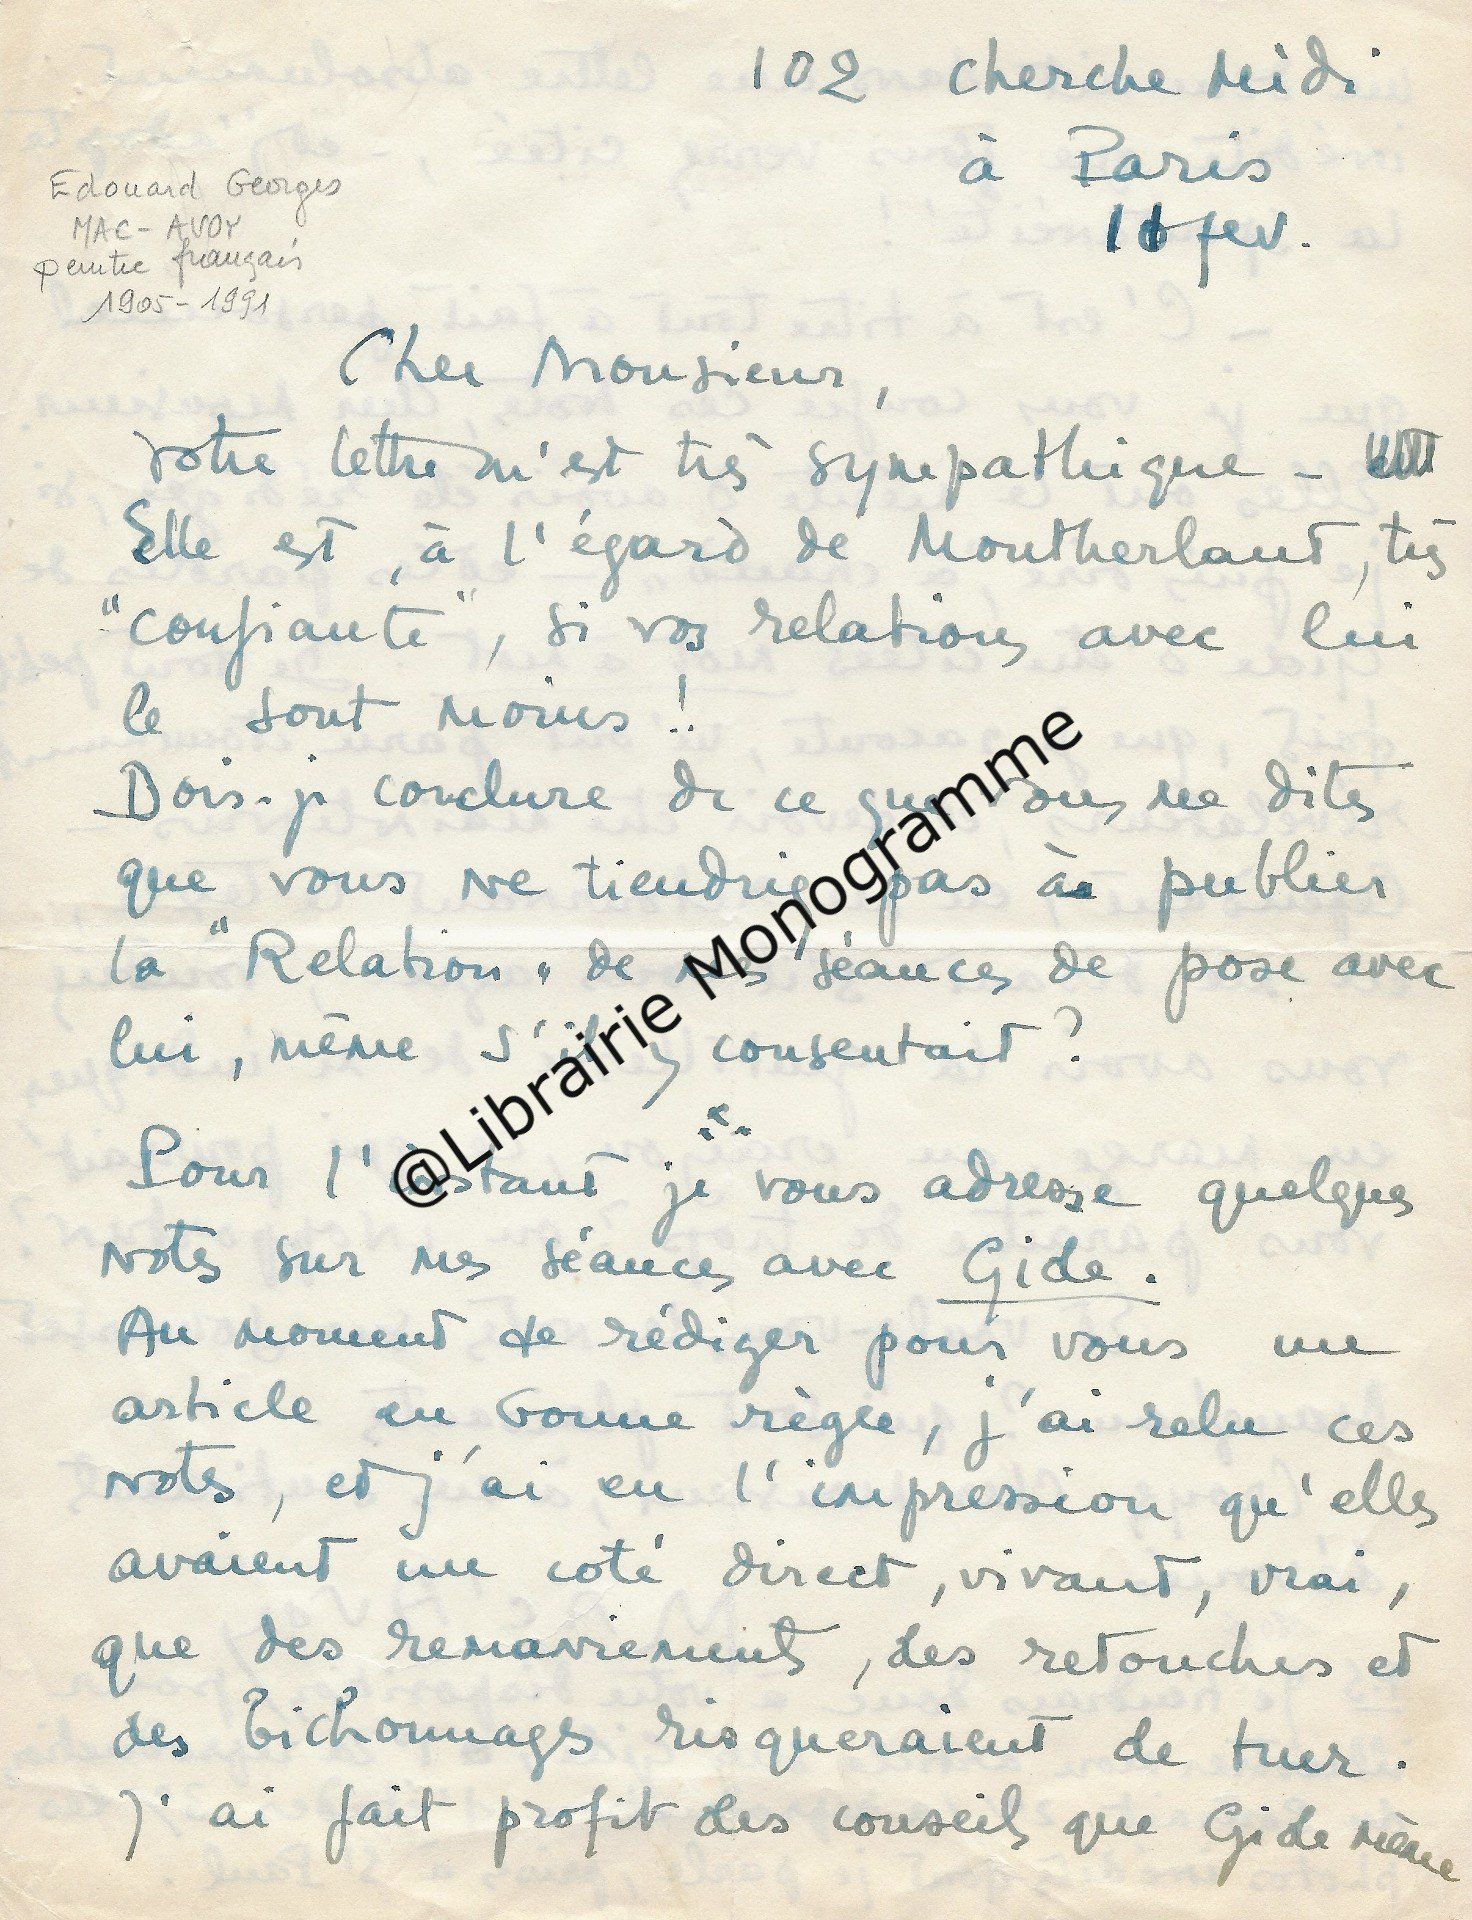 102 Cherche Midi
à Paris
fev.
Edouard Georges
MAC-AVOY
peintre français
1905-1991
Cher Monsieur,
Votre lettre m'est très sympathique -
Elle est, à l'égard de Montherlant, très
"confiante", si vos relations avec lui
le sont moins !
Dois-je conclure de ce que vous me dites
que vous ne tiendriez pas à publier
la "Relation" de mes séances de pose avec
lui, même s'il y consentait ?
@Librairie Monogramme
Pour l'instant je vous adresse quelques
notes sur mes séances avec Gide.
Au moment de rédiger pour vous un
article en bonne règle, j'ai relu ces
notes, et j'ai eu l'impression qu'elles
avaient un coté direct, vivant, vrai,
que des remaniements, des retouches et
des bichonnages risqueraient de tuer.
J'ai fait profit des conseils que Gide même